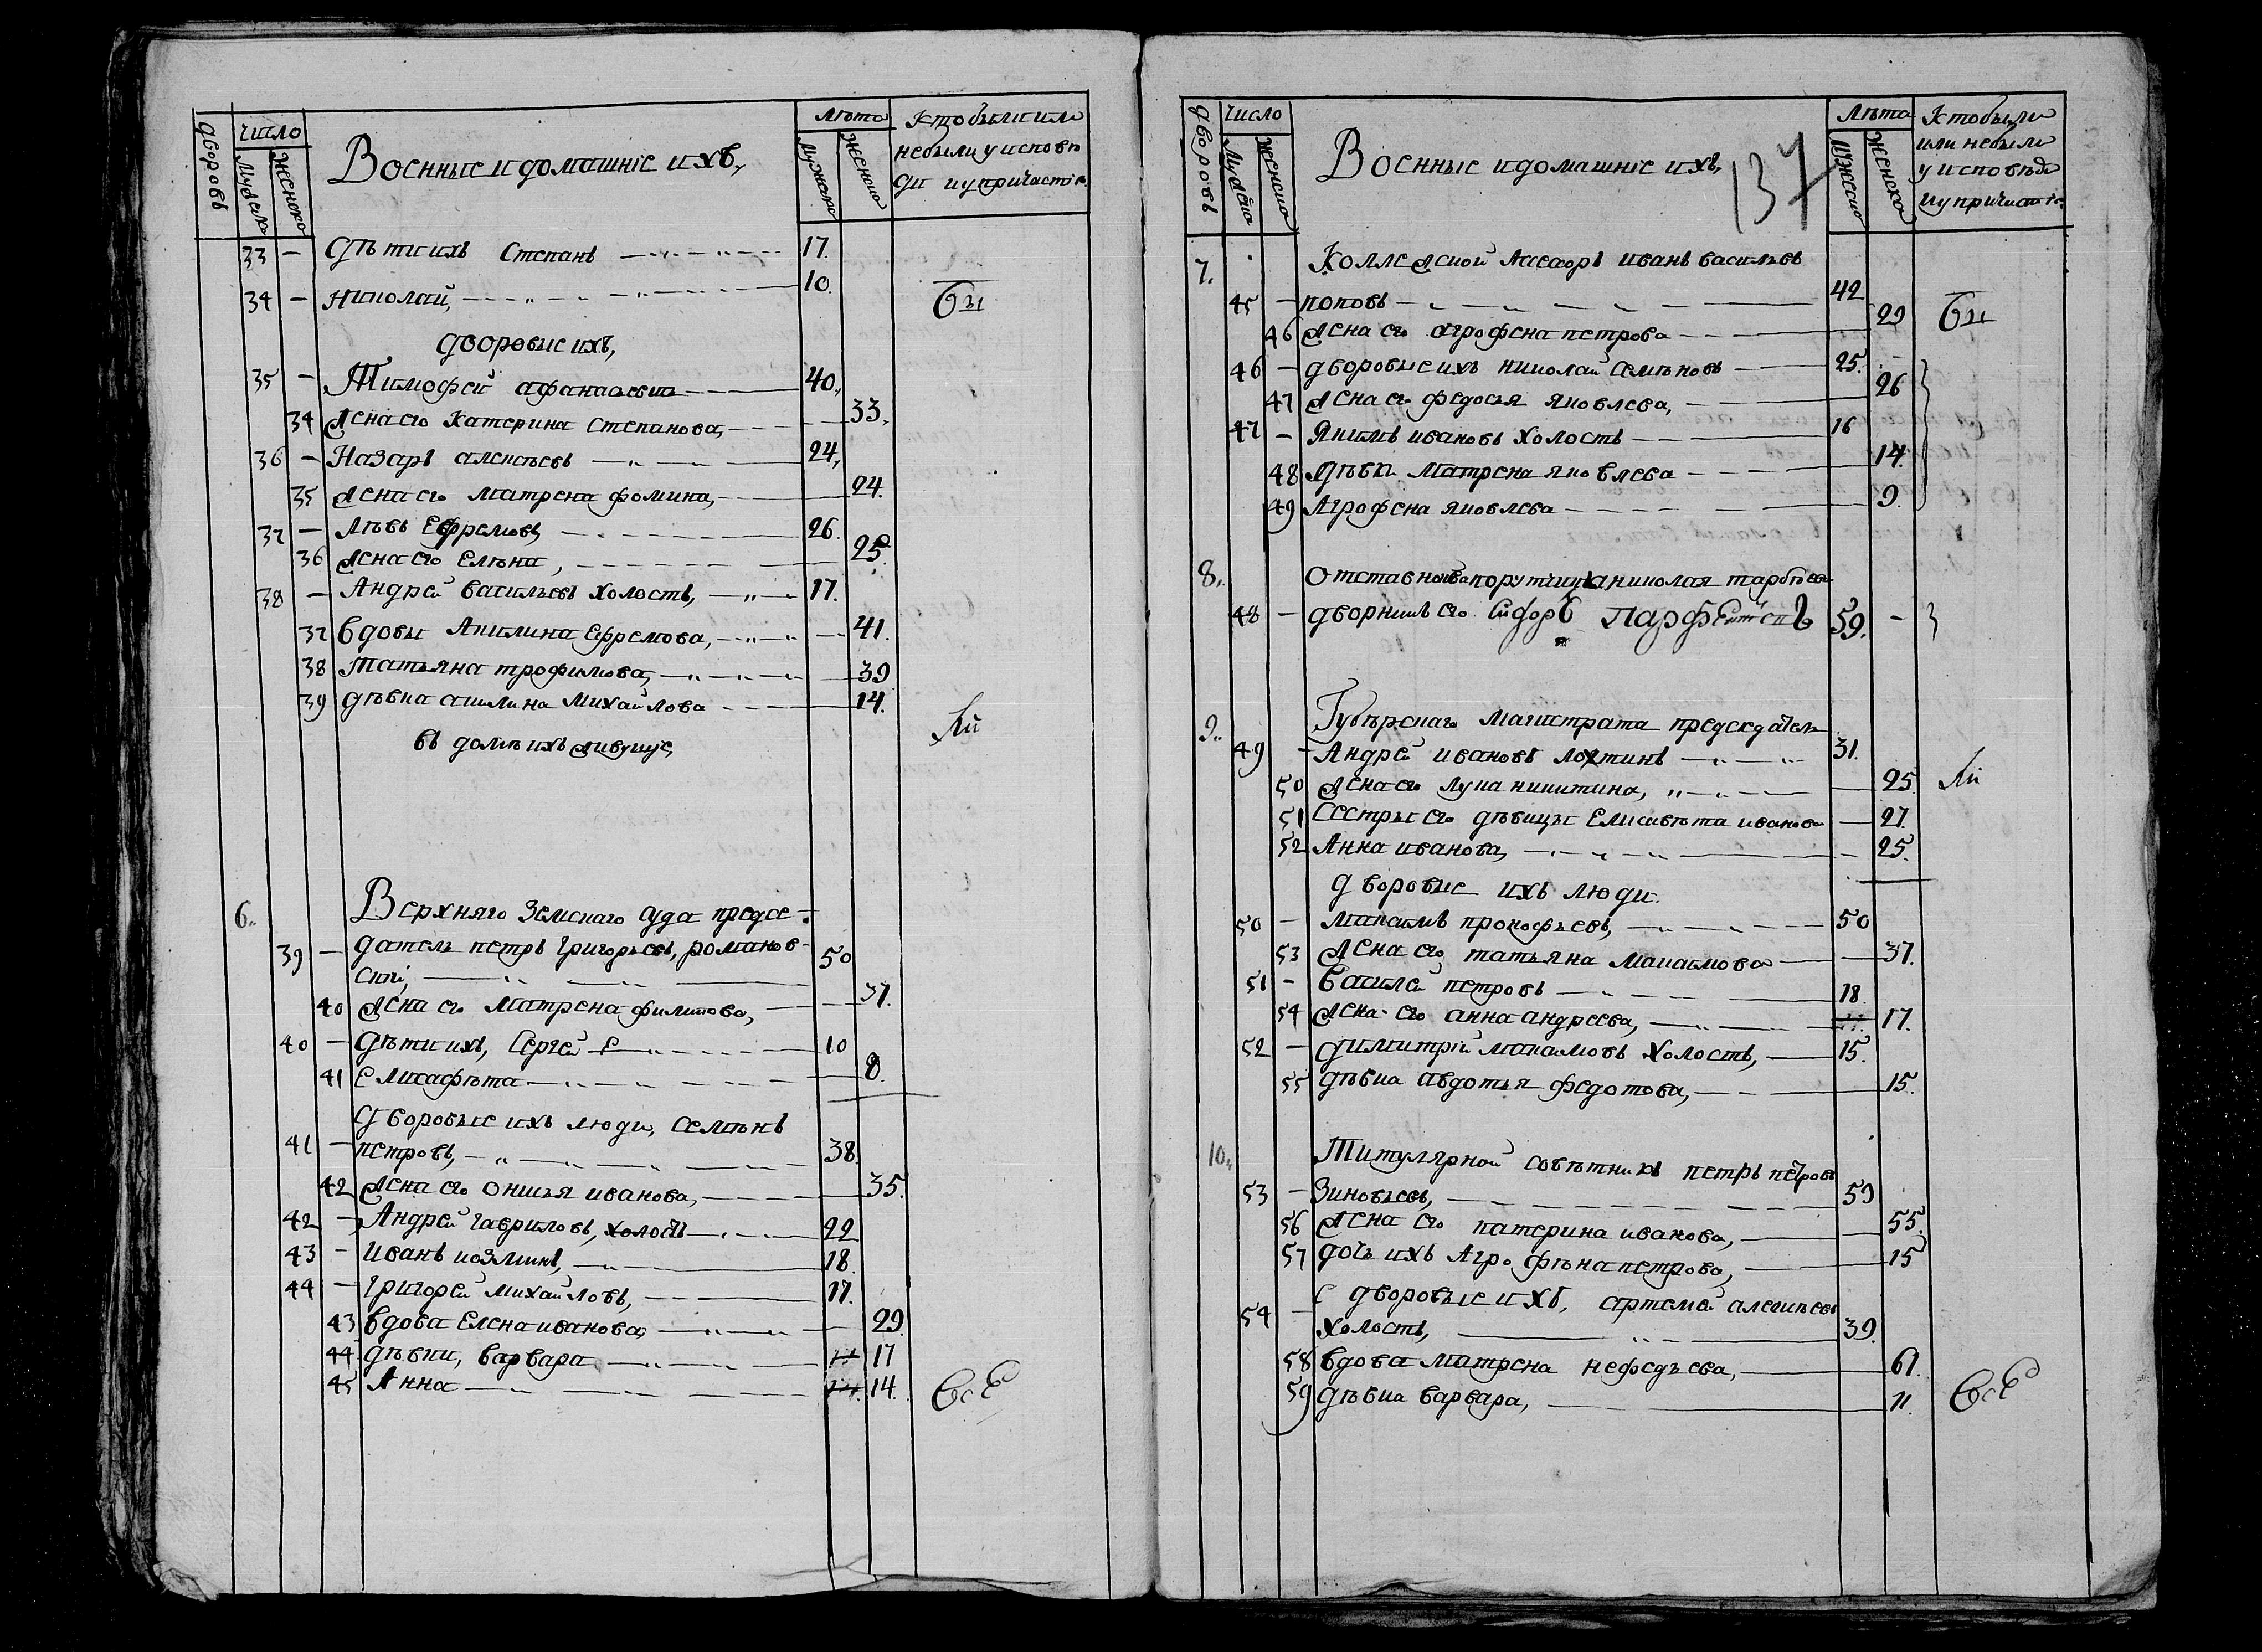 дворовъ число лѣта Кто были или
мужеска женска Военные и домашнïе ихъ, мужска женска небыли у исповѣ
ди и у причастïя.
33 – дѣти ихъ Степанъ 17.
34 – Николай, 10. бы
дворовые ихъ,
35 – Тимофей афанасьевъ 40.
34 жена его Катерина Степанова, 33.
36 – Назаръ алексѣевъ 24,
35 жена его матрена фомина, 24.
37 – лѣвъ Ефремовъ 26.
36 жена его Елѣна, 25.
38 – Андрей васильевъ холостъ, 17.
37 вдовы Акилина Ефремова, 41.
38 татьяна трофимова, 39
39 дѣвка акилина михайлова 14.
въ домѣ ихъ живущïе, ли
6. Верхняго Земскаго суда предсе-
39 – датель петръ григорьевъ, романов- 50
скïй,
40 жена его матрена филипова, 37.
40 – дѣти ихъ, Сергей 10
41 Елисафѣта 8.
дворовые ихъ люди, Семѣнъ
41 – петровъ, 38.
42 жена его онисья иванова, 35.
42 – Андрей гавриловъ, холостъ 22
43 – иванъ козминъ, 18.
44 – григорей михайловъ, 17.
43 вдова Елена иванова, 29.
44 дѣвки, варвара 17
45 Анна 14. всѣ
дворовъ число лѣта Кто были
мужеска женска Военные и домашнïе ихъ, 137 мужеска женска или небыли
у исповѣди
и у причастïя.
7. Коллежской Асесоръ иванъ васильевъ
45 – поповъ 42
46 жена его агрофена петрова 29 бы
46 – дворовые ихъ николай семѣновъ 25.
47 жена его федосья яковлева, 26
47 – Якимъ ивановъ холостъ 16
48 дѣвки матрена яковлева 14.
49 Агрофена яковлева 9.
8. отставнова порутчика николая тарбѣева
48 – дворникъ его 59. –
9. Губѣрнскаго магистрата председатель
49 – Андрей ивановъ лохтинъ 31.
50 жена его лука никитина, 25 ли
51 Сестры его дѣвицы Елисавѣта иванова 27.
52 Анна иванова, 25.
дворовые ихъ люди.
50 – макаимъ прокофьевъ, 50
53 жена его татьяна макаимова 37.
51 – василей петровъ 18.
54 жена его анна андреева, 17.
52 – димитрïй макаимовъ холостъ, 15.
55 дѣвка авдотья федотова, 15.
10. Титулярной совѣтникъ петръ петровъ
53 – Зиновьевъ, 59
56 жена его катерина иванова, 55.
57 дочь ихъ Агрофѣна петрова, 15
дворовые ихъ, артемей алексѣевъ
54 – холостъ, 39.
58 вдова матрена нефедьева, 61.
59 дѣвка варвара, 11. всѣ